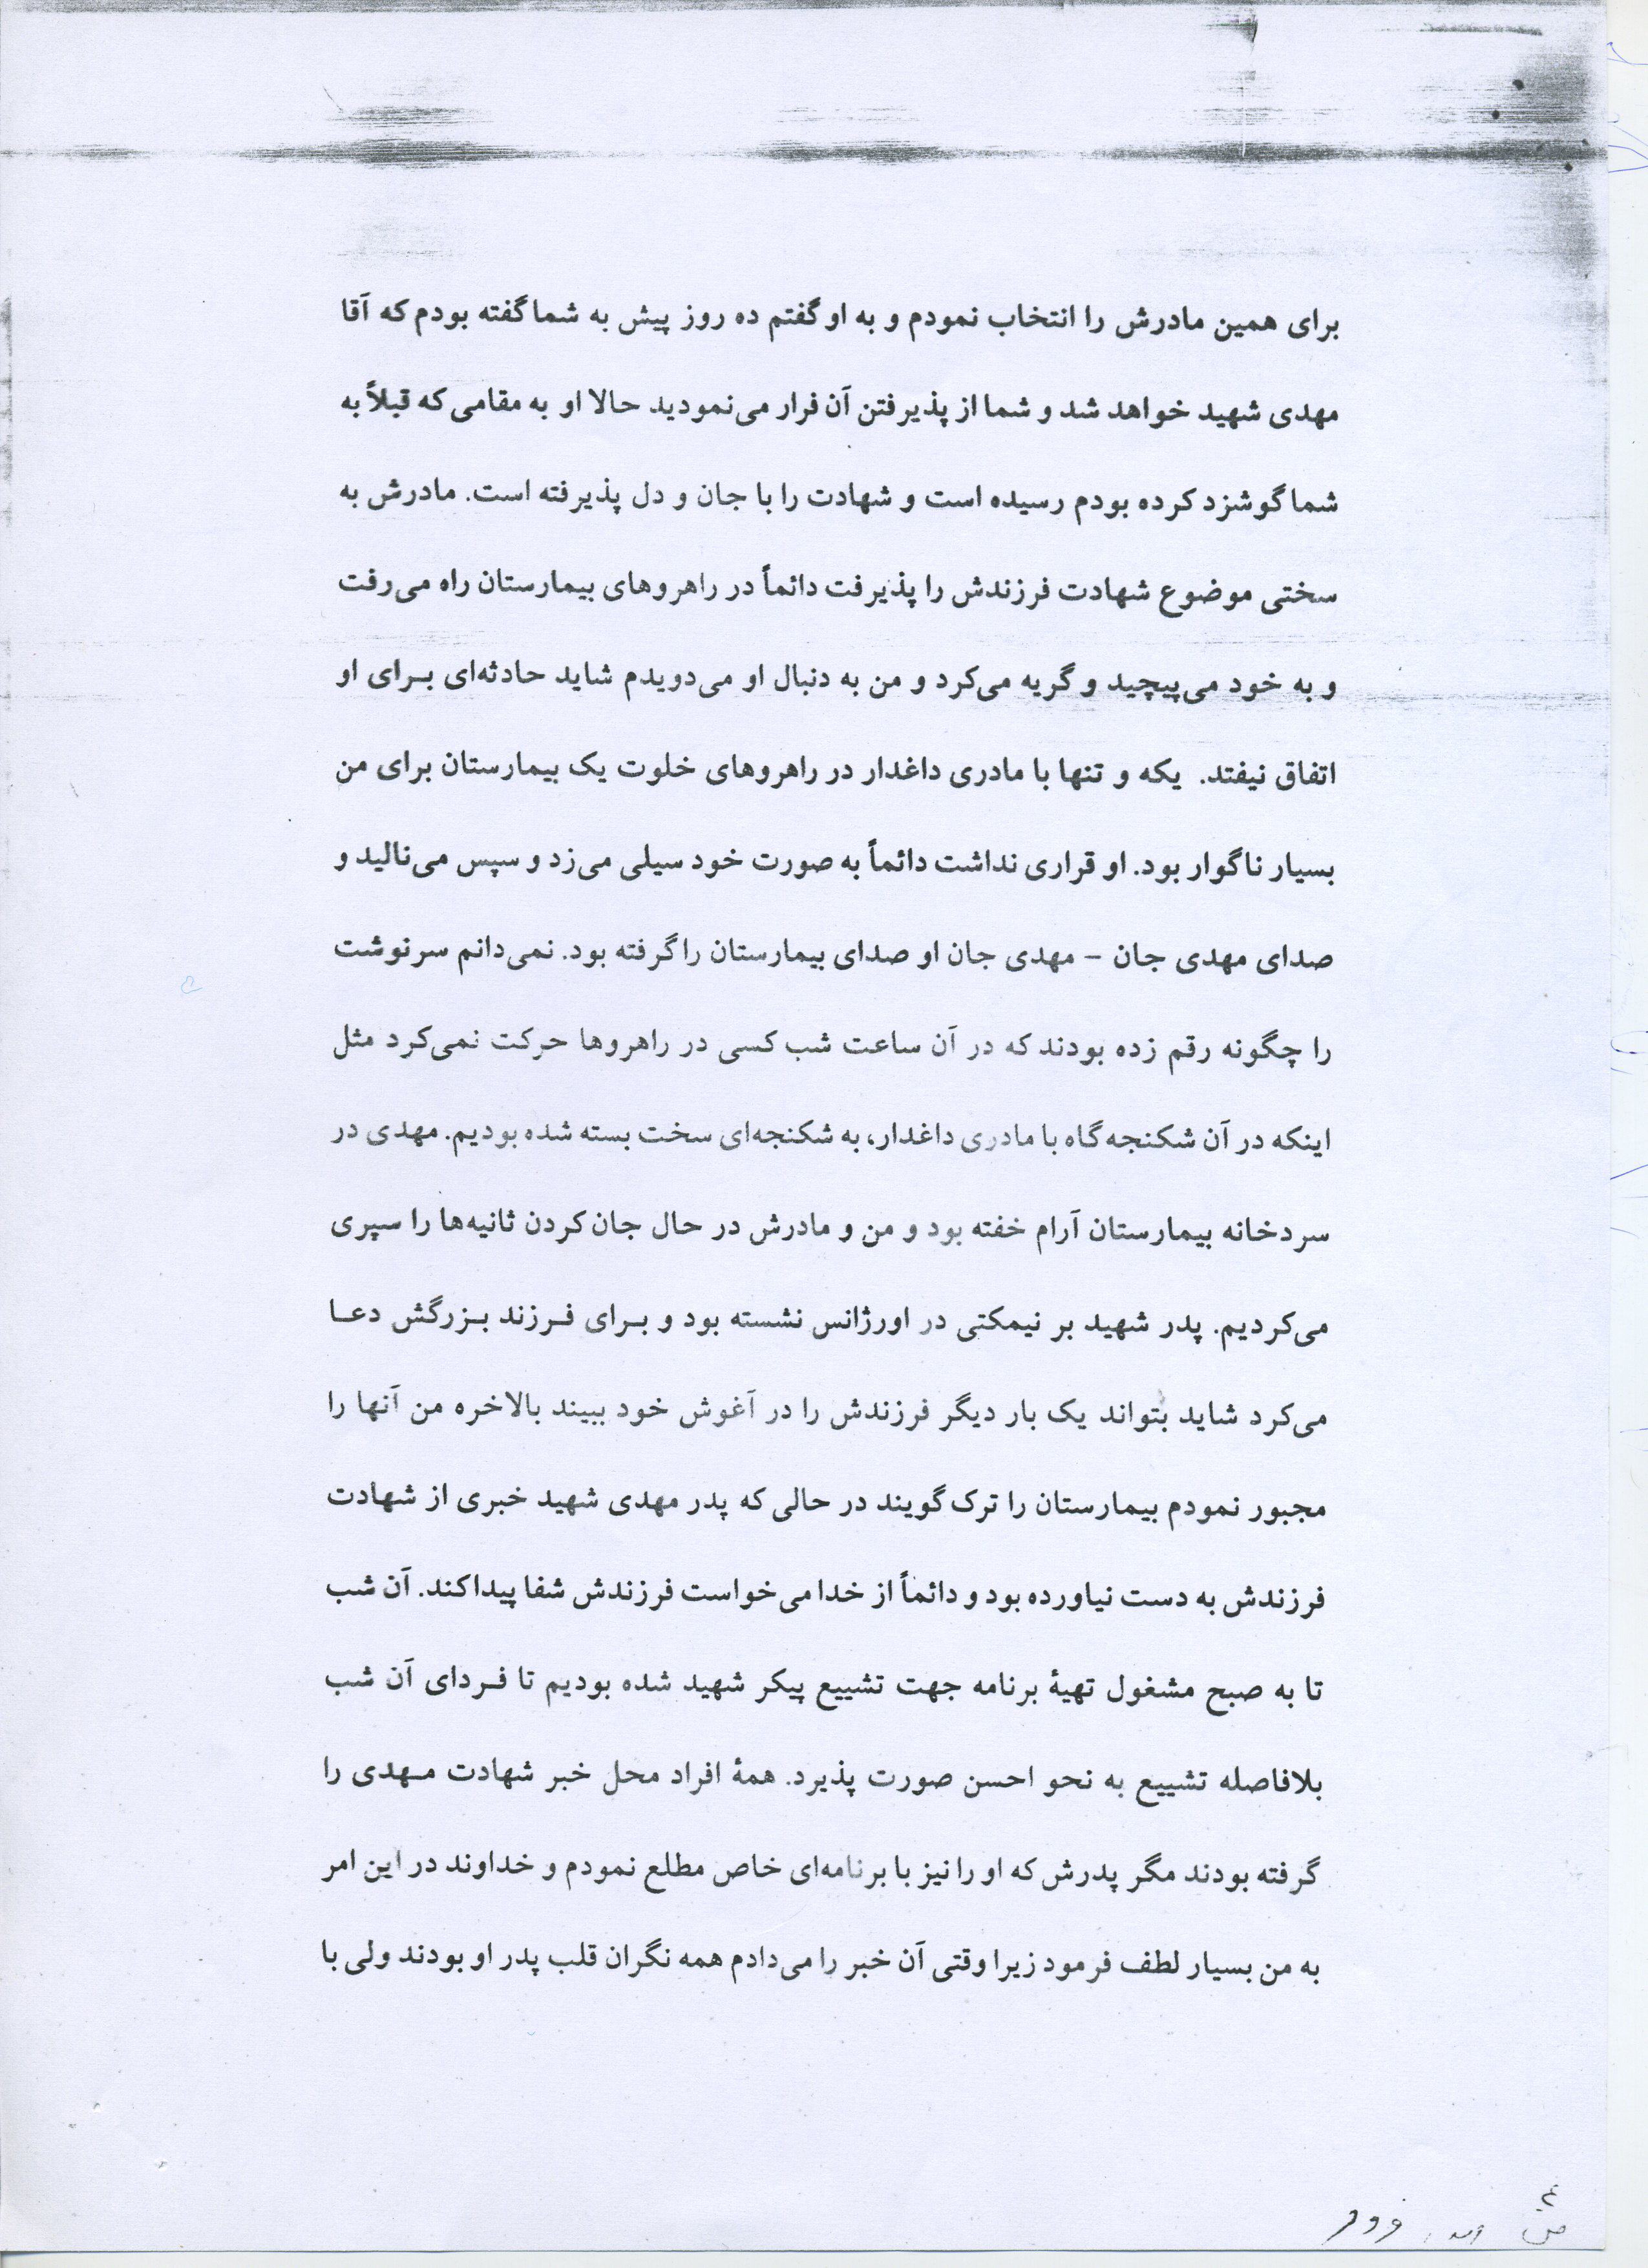 برای همین مادرش را انتخاب نمودم و به او گفتم ده روز پیش به شما گفته بودم که آقا
مهدی شهید خواهد شد و شما از پذیرفتن آن فرار می‌نمودید حالا او به مقامی که قبلاً به
شما گوشزد کرده بودم رسیده است و شهادت را با جان و دل پذیرفته است. مادرش به
سختی موضوع شهادت فرزندش را پذیرفت دائماً در راهروهای بیمارستان راه می‌رفت
و به خود می‌پیچید و گریه می‌کرد و من به دنبال او می‌دویدم شاید حادثه‌ای بـرای او
اتفاق نیفتد. یکه و تنها با مادری داغدار در راهروهای خلوت یک بیمارستان برای من
بسیار ناگوار بود. او قراری نداشت دائماً به صورت خود سیلی می‌زد و سپس می‌نالید و
صدای مهدی جان - مهدی جان او صدای بیمارستان را گرفته بود. نمی‌دانم سرنوشت
را چگونه رقم زده بودند که در آن ساعت شب کسی در راهروها حرکت نمی‌کرد مثل
اینکه در آن شکنجه‌گاه با مادری داغدار، به شکنجه‌ای سخت بسته شده بودیم. مهدی در
سردخانه بیمارستان آرام خفته بود و من و مادرش در حال جان کردن ثانیه‌ها را سپری
می‌کردیم. پدر شهید بر نیمکتی در اورژانس نشسته بود و بـرای فـرزند بـزرگش دعـا
می‌کرد شاید بتواند یک بار دیگر فرزندش را در آغوش خود ببیند بالاخره من آنها را
مجبور نمودم بیمارستان را ترک گویند در حالی که پدر مهدی شهید خبری از شهادت
فرزندش به دست نیاورده بود و دائماً از خدا می‌خواست فرزندش شفا پیدا کند. آن شب
تا به صبح مشغول تهیهٔ برنامه جهت تشییع پیکر شهید شده بودیم تا فـردای آن شب
بلافاصله تشییع به نحو احسن صورت پذیرد. همهٔ افراد محل خبر شهادت مـهدی را
گرفته بودند مگر پدرش که او را نیز با برنامه‌ای خاص مطلع نمودم و خداوند در این امر
به من بسیار لطف فرمود زیرا وقتی آن خبر را می‌دادم همه نگران قلب پدر او بودند ولی با